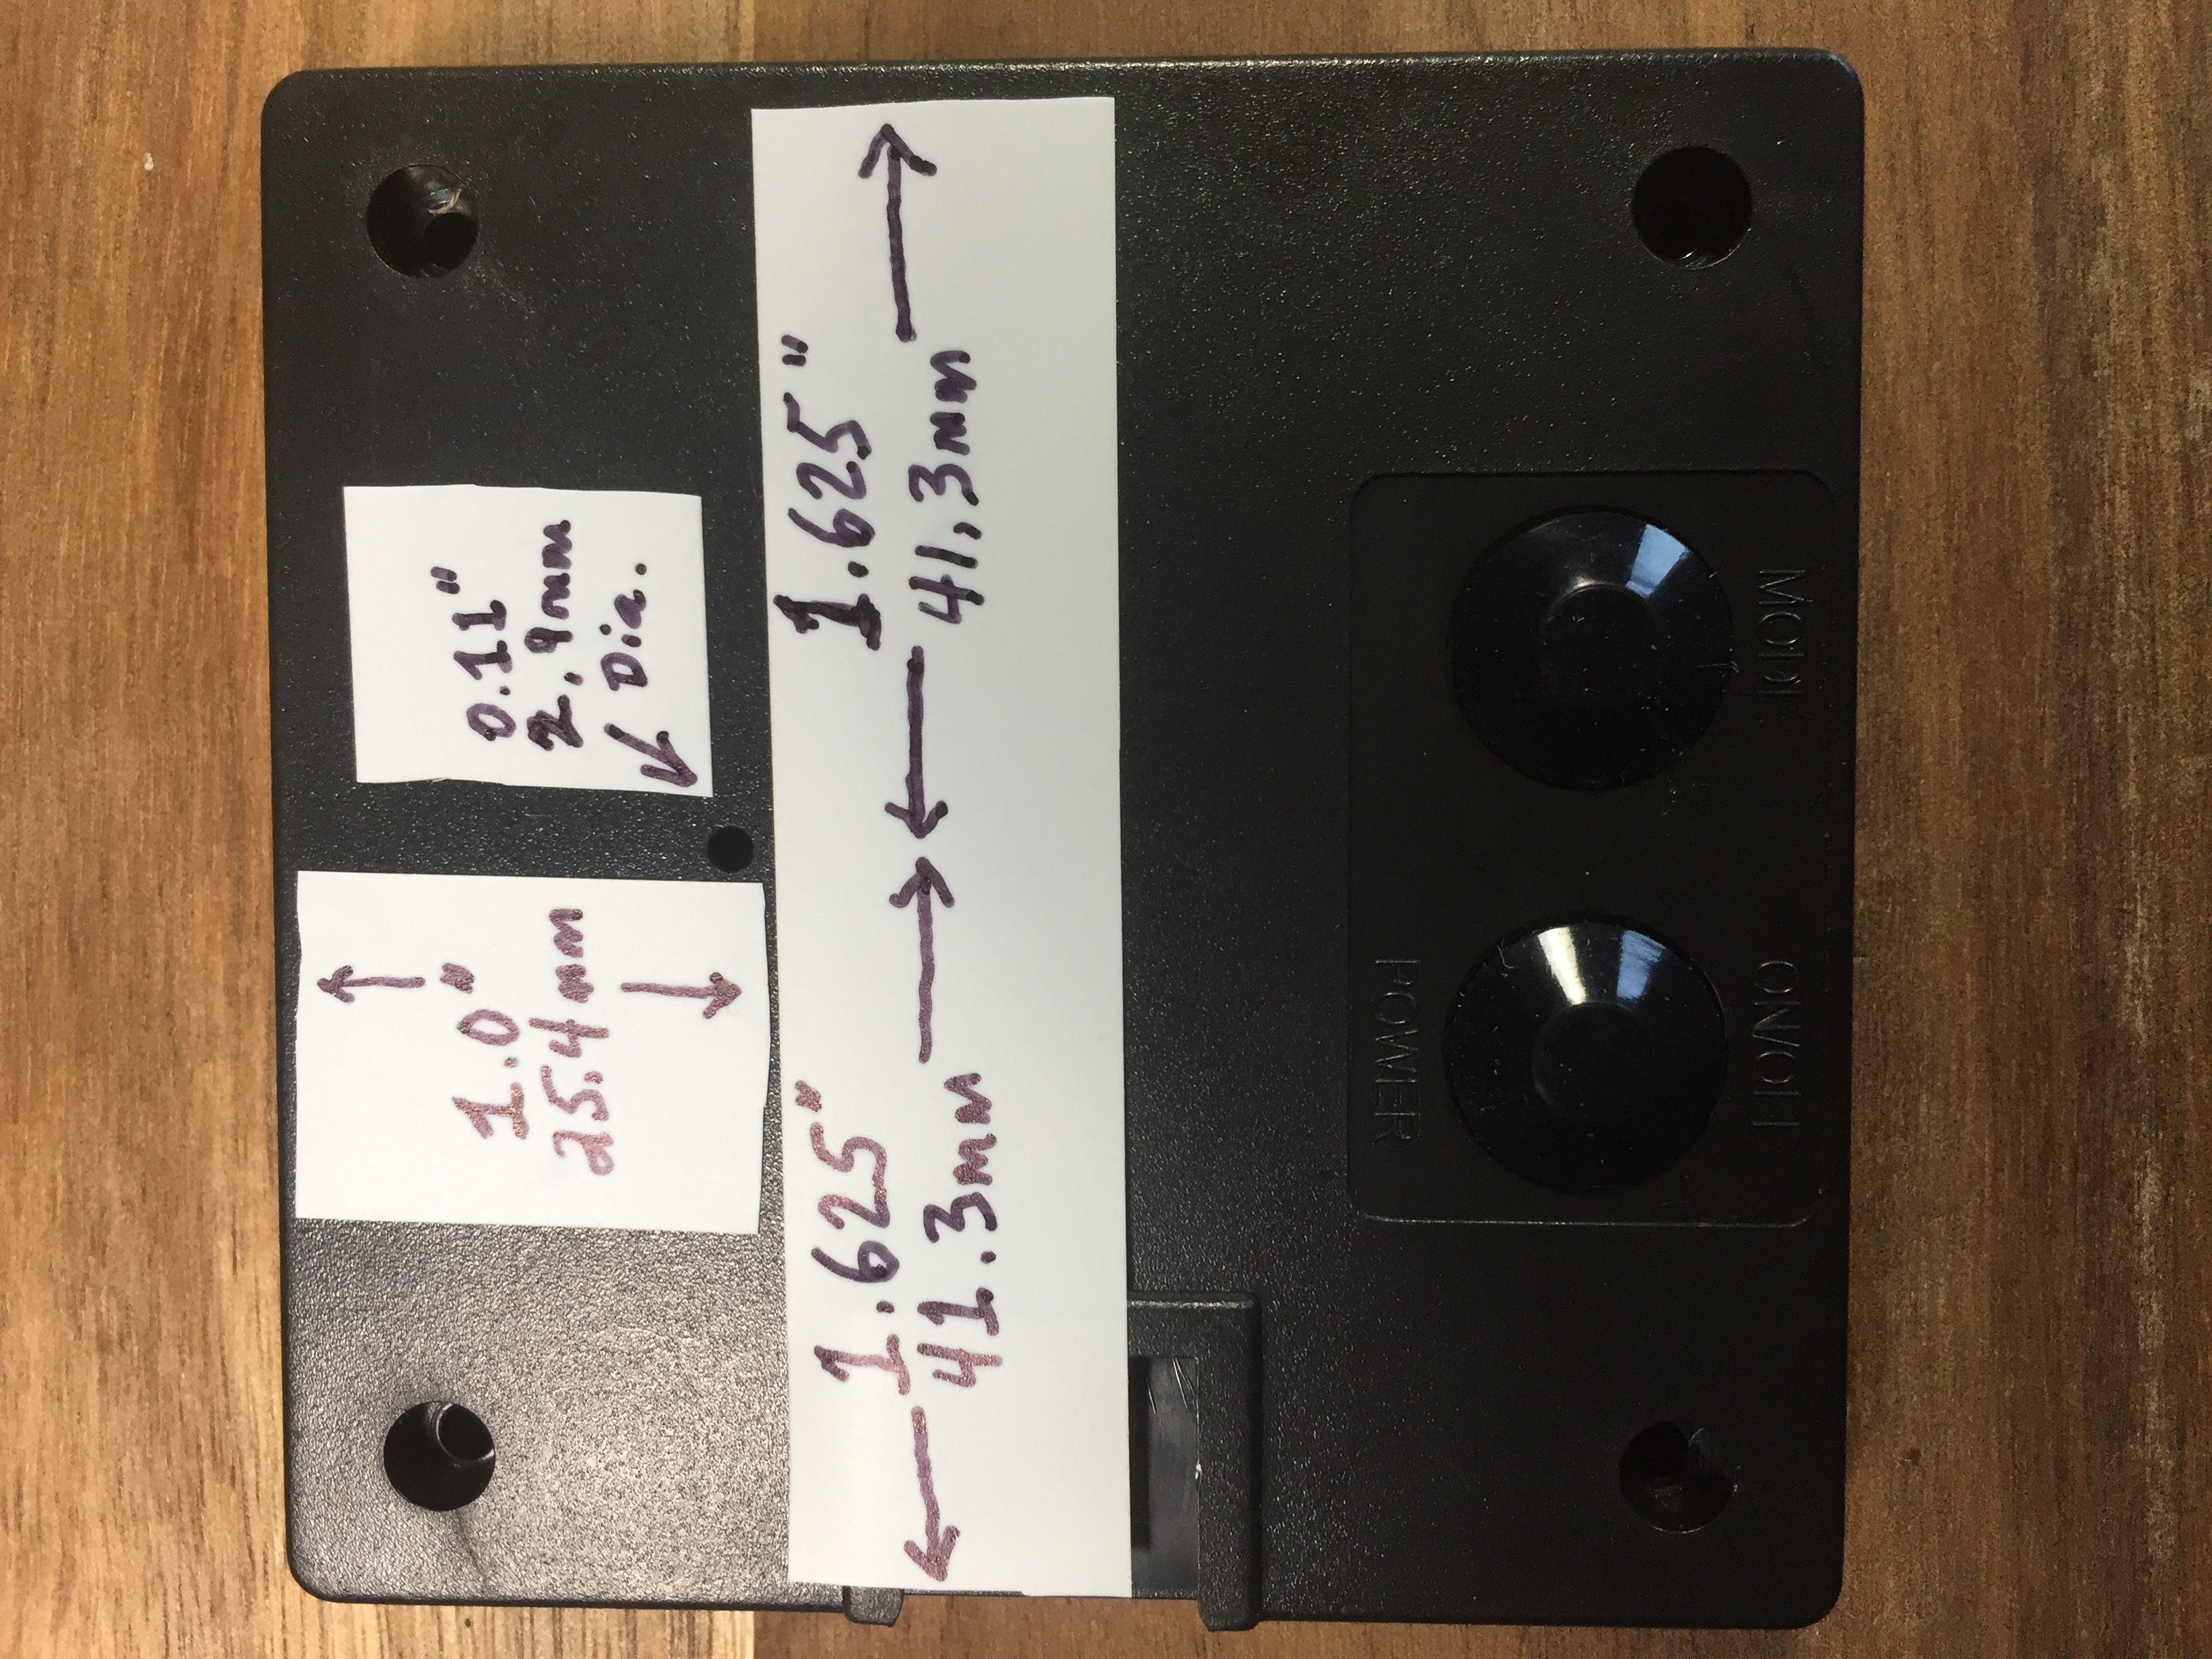 1.0"
25.4mm
0.11"
2.9mm
Dia.
1.625"
41.3mm
1.625"
41.3mm
POWER
ON/OFF
MODE